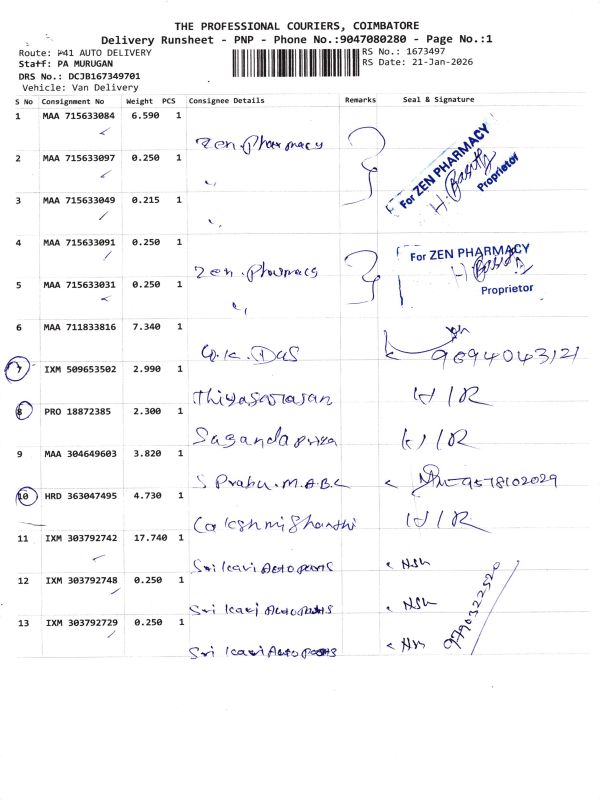 THE PROFESSIONAL COURIERS, COIMBATORE
Delivery Runsheet - PNP - Phone No.:9047080280 - Page No.:1
Route: P41 AUTO DELIVERY
RS No.: 1673497
Staff: PA MURUGAN
RS Date: 21-Jan-2026
DRS No.: DCJB167349701
Vehicle: Van Delivery
S No Consignment No Weight PCS Consignee Details Remarks Seal & Signature
1 MAA 715633084 6.590 1
Zen Pharmacy
For ZEN PHARMACY
Proprietor
2 MAA 715633097 0.250 1
"
3 MAA 715633049 0.215 1
"
4 MAA 715633091 0.250 1
Zen Pharmacy
For ZEN PHARMACY
Proprietor
5 MAA 715633031 0.250 1
"
6 MAA 711833816 7.340 1
G.K. DAS 9694043121
7 IXM 509653502 2.990 1
Thiyagarasan H/R
8 PRO 18872385 2.300 1
Sagandapriya H/R
9 MAA 304649603 3.820 1
S Prabu. M.A.B.L 9578102029
10 HRD 363047495 4.730 1
Lakshmi Shanthi H/R
11 IXM 303792742 17.740 1
Sri Kavi Auto parts
12 IXM 303792748 0.250 1
Sri Kavi Auto parts
13 IXM 303792729 0.250 1
Sri Kavi Auto parts
9790322520